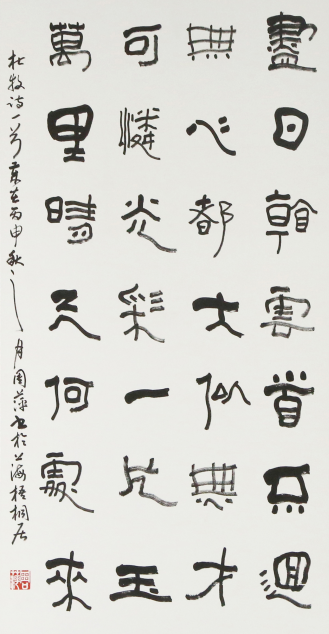 盡日看雲首不迴
無心都大似無才
可憐光彩一片玉
萬里晴天何處來
杜牧诗一首歲在丙申秋之月周萍书於上海梧桐居